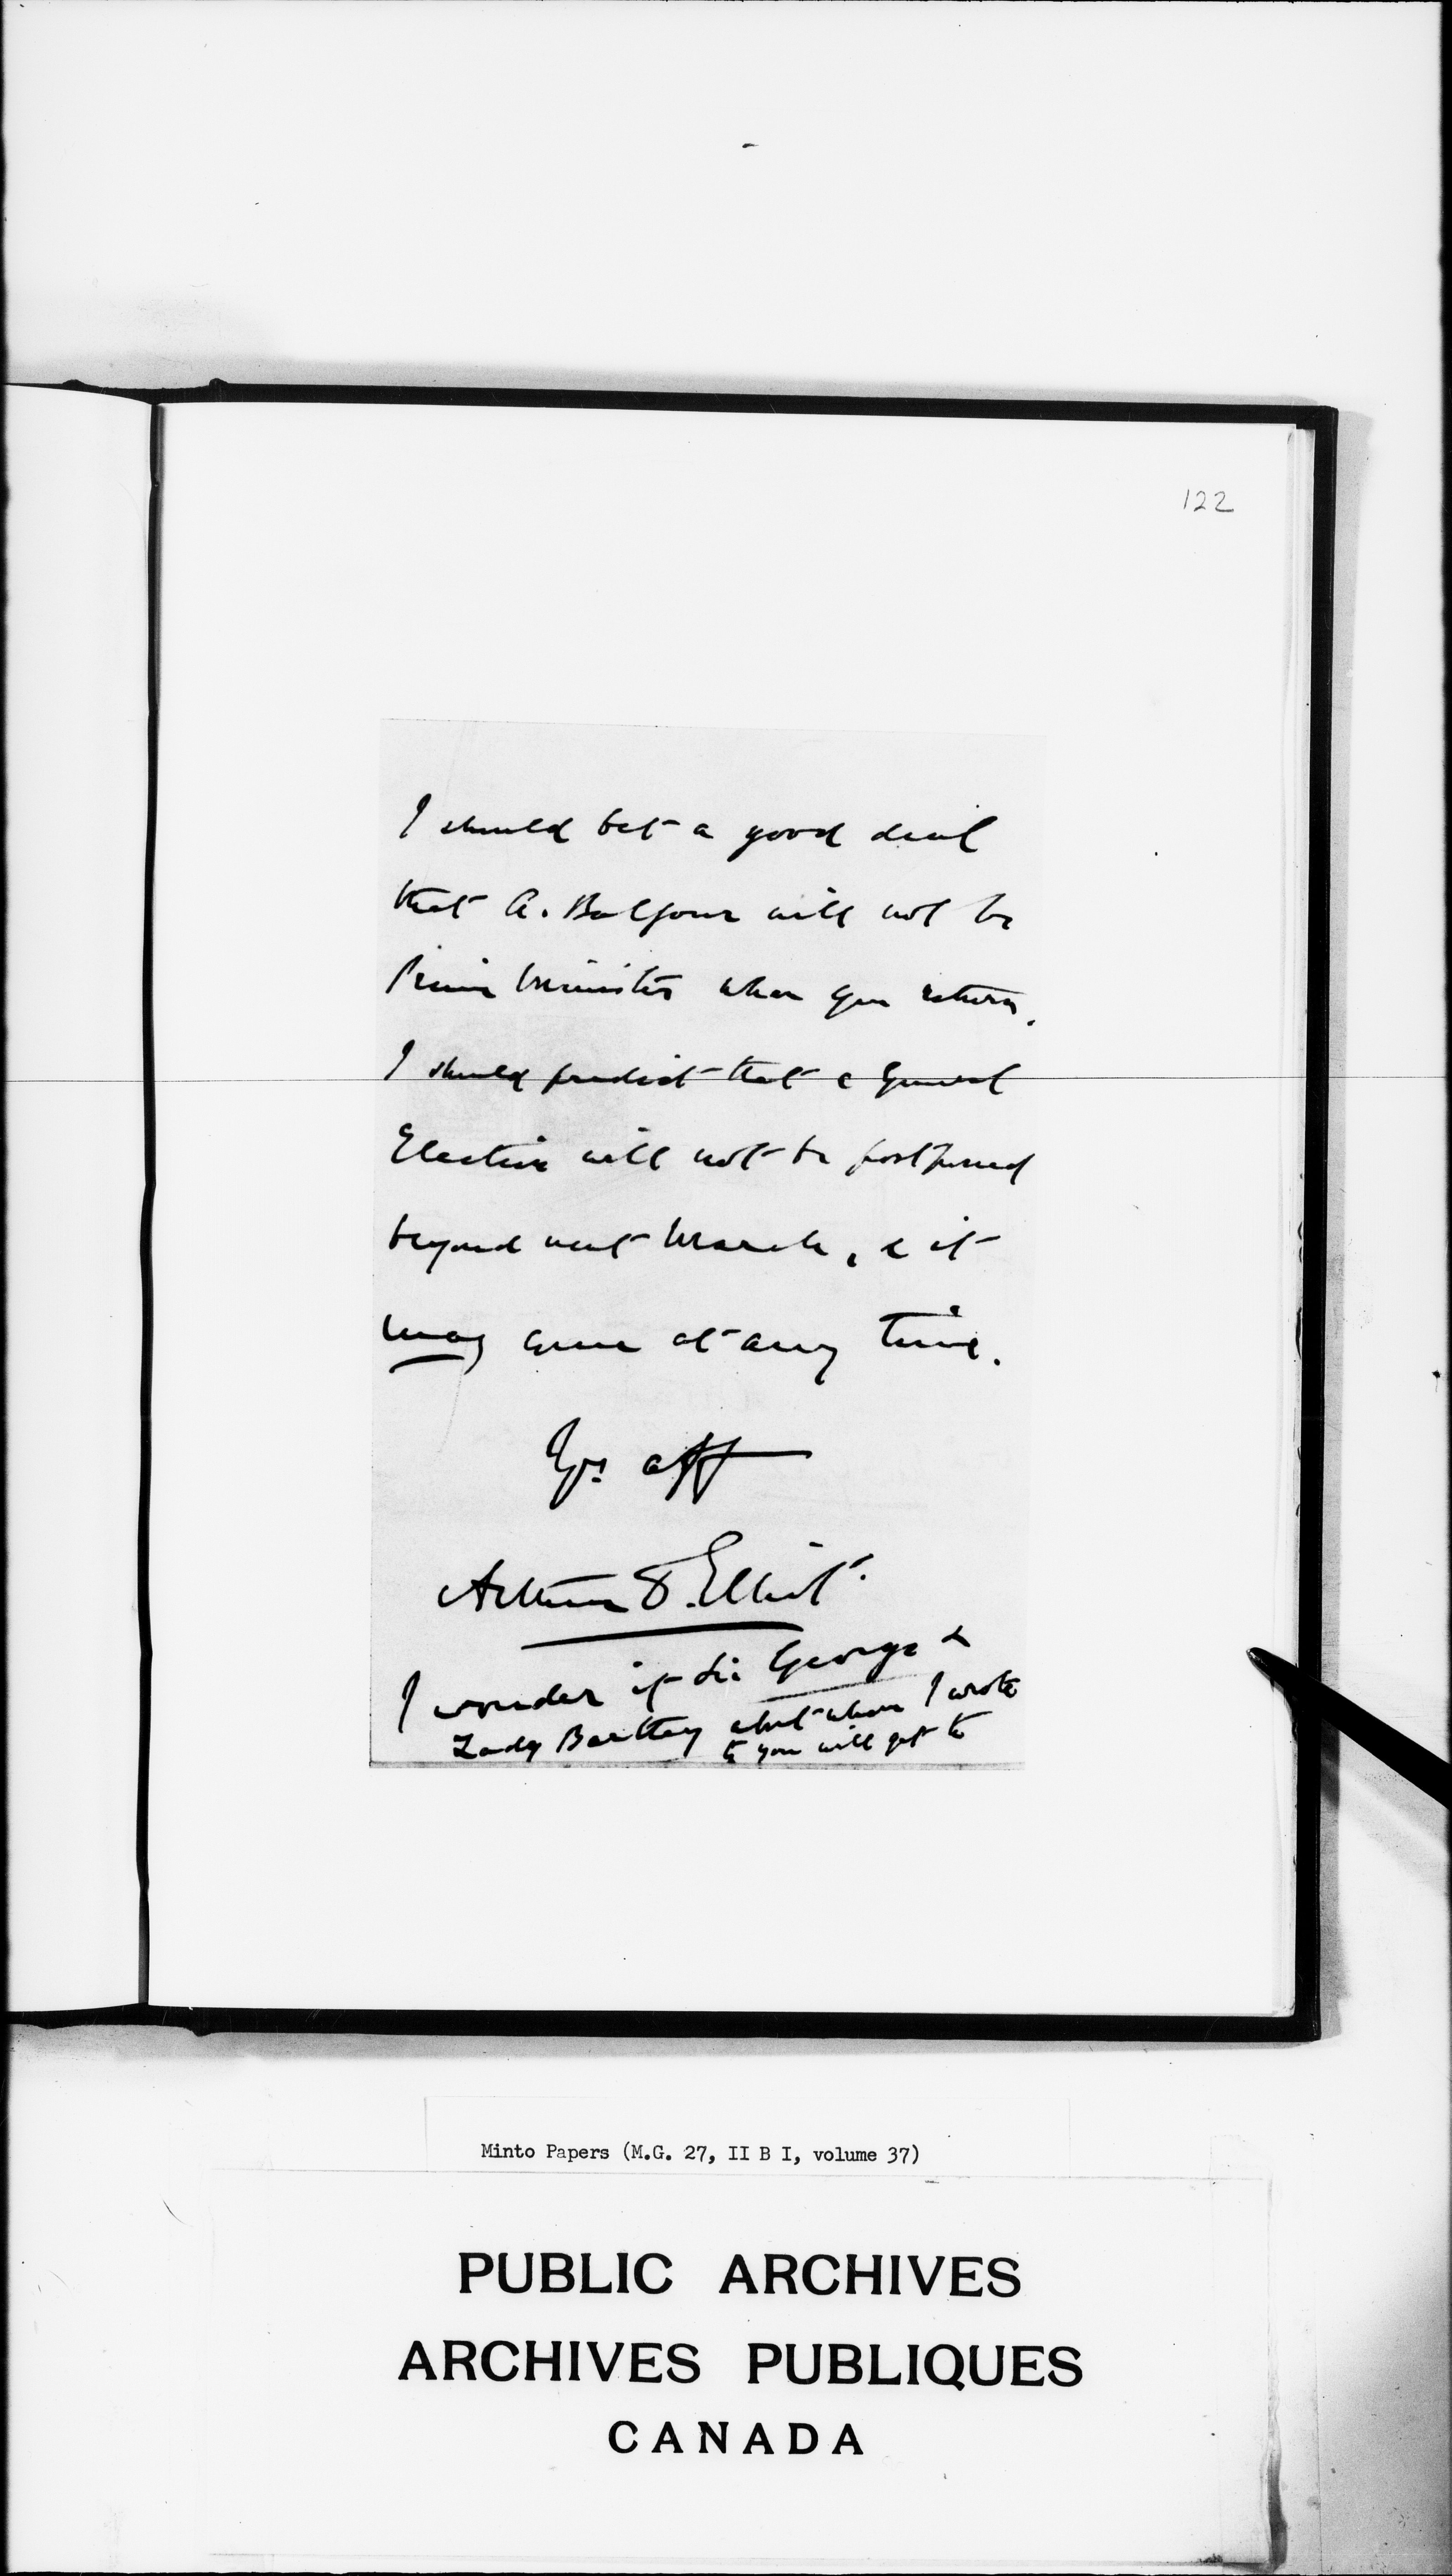 122
I should bet a good deal
that A. Balfour will not be
Prime Minister when you return.
I should predict that a General
Election will not be postponed
beyond next March, & it
may come at any time.
Yrs. aff
Arthur D. Elliot.
I wonder if Sir George &
Lady Barttey about whom I wrote
to you will get to
Minto Papers (M.G. 27, II B I, volume 37)
PUBLIC ARCHIVES
ARCHIVES PUBLIQUES
CANADA